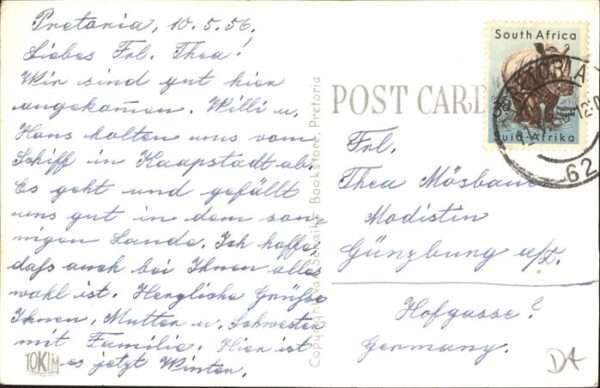 Pretoria, 10.5.56.
Liebes Frl. Thea!
Wir sind gut hier
angekom̅en. Willi u.
Hans holten uns vom
Schiff in Kaapstadt ab.
Es geht und gefällt
uns gut in dem son-
nigen Lande. Ich hoffe
daß auch bei Ihnen alles
wohl ist. Herzliche Grüße
Ihnen, Mutter u. Schwester
mit Familie. Hier ist
es jetzt Winter.
10KM
Bookstore, Pretoria
POST CARD
South Africa
Suid-Afrika
PRETORIA
62
Frl.
Thea Mösbau
Modistin
Günzburg a/D.
Hofgasse?
Germany.
DA